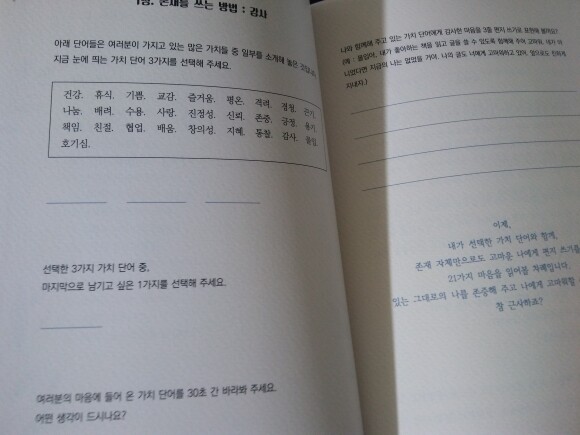 1장. 존재를 쓰는 방법 : 감사
아래 단어들은 여러분이 가지고 있는 많은 가치들 중 일부를 소개해 놓은 것입니다.
지금 눈에 띄는 가치 단어 3가지를 선택해 주세요.
건강, 휴식, 기쁨, 교감, 즐거움, 평온, 격려, 경청, 끈기,
나눔, 배려, 수용, 사랑, 진정성, 신뢰, 존중, 긍정, 용기,
책임, 친절, 협업, 배움, 창의성, 지혜, 통찰, 감사, 몰입,
호기심.
선택한 3가지 가치 단어 중,
마지막으로 남기고 싶은 1가지를 선택해 주세요.
여러분의 마음에 들어 온 가치 단어를 30초 간 바라봐 주세요.
어떤 생각이 드시나요?
나와 함께해 주고 있는 가치 단어에게 감사한 마음을 3줄 편지 쓰기로 표현해 볼까요?
(예 : 몰입아, 내가 좋아하는 책을 읽고 글을 쓸 수 있도록 함께해 주어 고마워. 네가 아
니었다면 지금의 나는 없었을 거야. 나의 글도 너에게 고마워하고 있어. 앞으로도 친하게
지내자.)
이제,
내가 선택한 가치 단어와 함께,
존재 자체만으로도 고마운 나에게 편지 쓰기를
21가지 마음을 읽어볼 차례입니다.
있는 그대로의 나를 존중해 주고 나에게 고마워할
참 근사하죠?